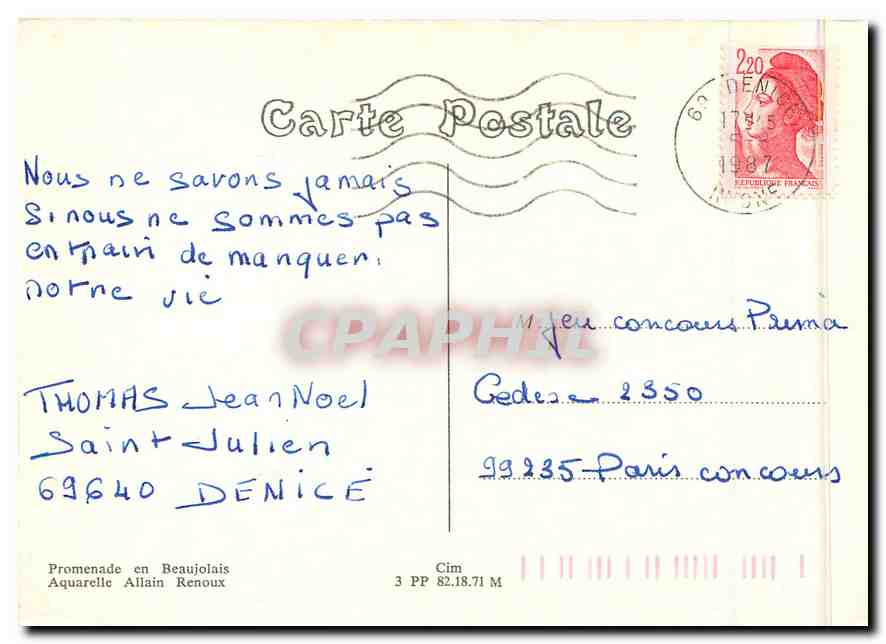 Carte Postale
2,20
69 DENICE
17H45
1987
RHONE
REPUBLIQUE FRANÇAIS
Nous ne savons jamais
Si nous ne sommes pas
entrain de manquer
notre vie
THOMAS Jean Noel
Saint Julien
69640 DENICÉ
CPAPHIL
M Jeu concours Prima
Cedex 2350
99235 Paris concours
Promenade en Beaujolais
Aquarelle Allain Renoux
Cim
3 PP 82.18.71 M